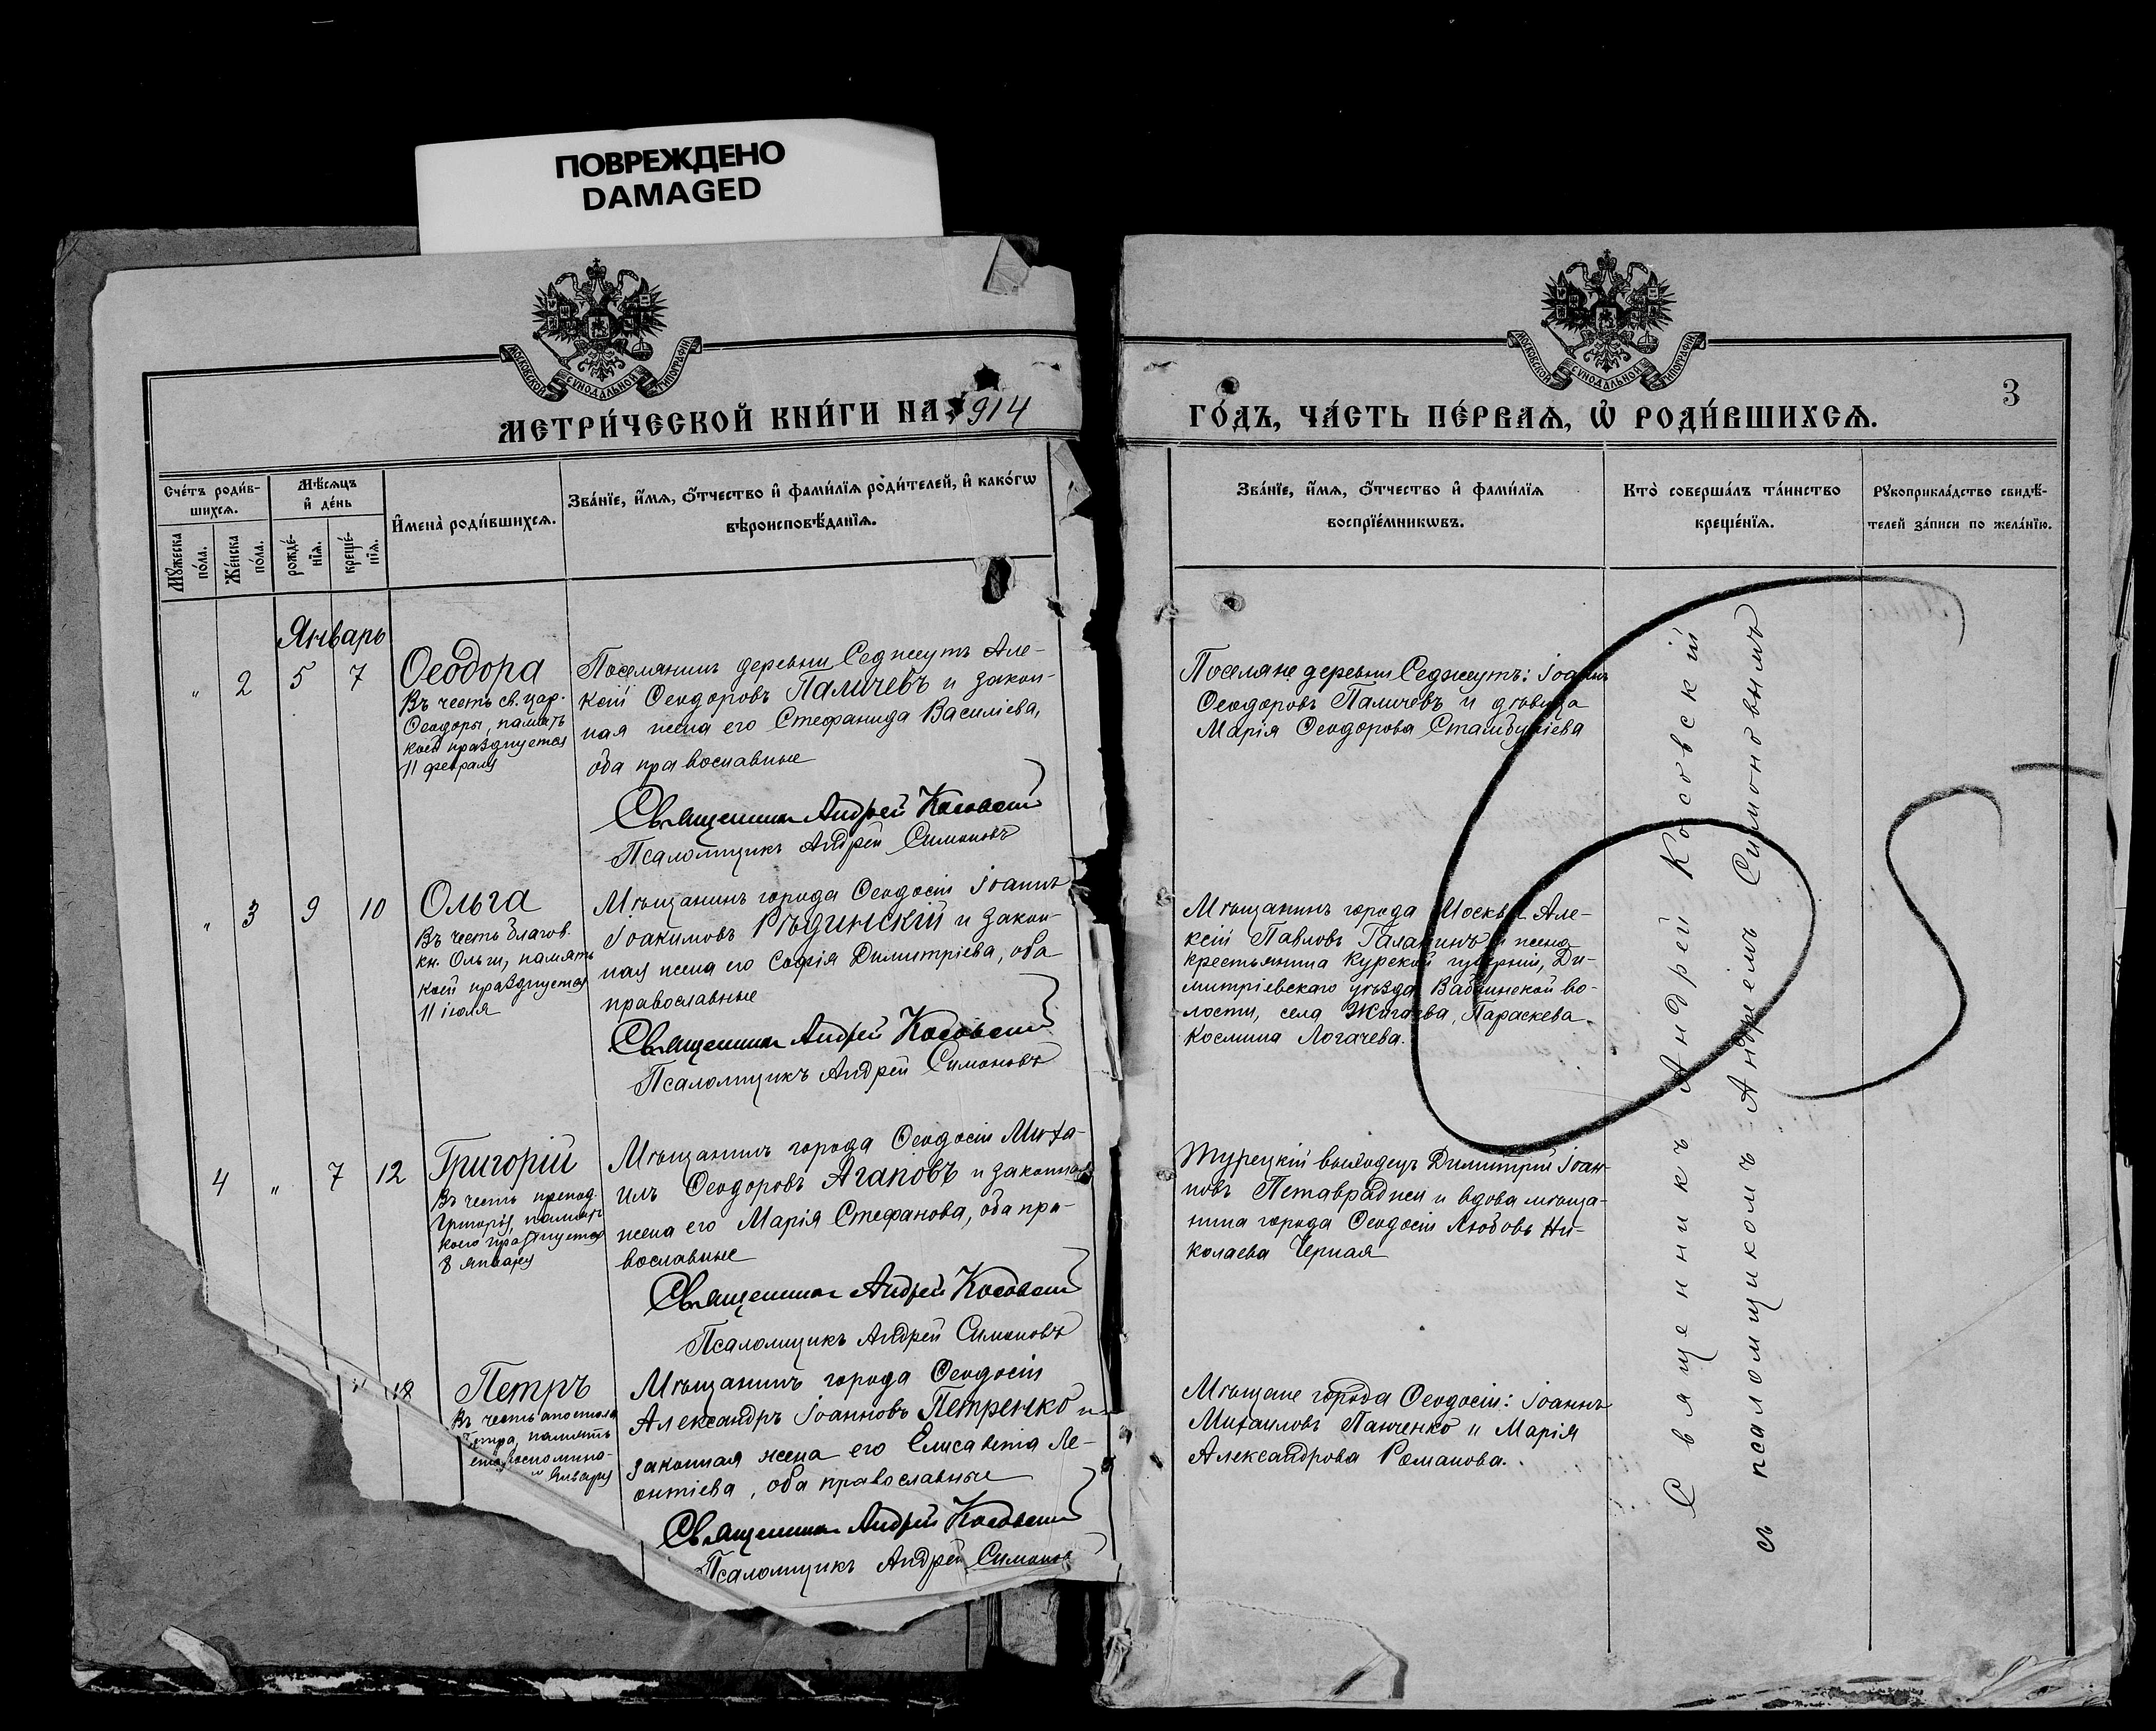 ПОВРЕЖДЕНО
DAMAGED
МОСКОВСКОЙ СѴНОДАЛЬНОЙ ТИПОГРАФІИ
МЕТРИ́ЧЕСКОЙ КНИ́ГИ НА 1914
Сче́тъ роди́в-
шихсѧ.
Мѣ́сѧцъ
и҆ де́нь
И҆мена̀ роди́вшихсѧ.
Зва́нїе, и҆́мѧ, ѻ҆́тчество и҆ фами́лїѧ роди́телей, и҆ како́гѡ
вѣроисповѣ́данїѧ.
Мꙋ́жеска
по́ла.
Же́нска
по́ла.
рожде́-
нїѧ.
креще́-
нїѧ.
Январь
" 2 5 7
Ѳеодора
Въ честь св. цар.
Ѳеодоры, память
коей празднуется
11 февраля
Поселянинъ деревни Седжеутъ Але-
ксій Ѳеодоровъ Паличевъ и закон-
ная жена его Стефанида Василіева,
оба православные
Священникъ Андрей Косовскій
Псаломщикъ Андрей Симоновъ
" 3 9 10
Ольга
Въ честь благов.
кн. Ольги, память
коей празднуется
11 іюля
Мѣщанинъ города Ѳеодосіи Іоаннъ
Іоакимовъ Рѣдинскій и закон-
ная жена его Софія Димитріева, оба
православные
Священникъ Андрей Косовскій
Псаломщикъ Андрей Симоновъ
4 " 7 12
Григорій
Въ честь препод.
Григорія, память
коего празднуется
8 января
Мѣщанинъ города Ѳеодосіи Миха-
илъ Ѳеодоровъ Агаповъ и законная
жена его Марія Стефанова, оба пра-
вославные
Священникъ Андрей Косовскій
Псаломщикъ Андрей Симоновъ
" 18
Петръ
Въ честь апостола
Петра, память
воспомина-
января
Мѣщанинъ города Ѳеодосіи
Александръ Іоанновъ Петренко и
законная жена его Елисавета Ле-
онтіева, оба православные
Священникъ Андрей Косовскій
Псаломщикъ Андрей Симонов
МОСКОВСКОЙ СѴНОДАЛЬНОЙ ТИПОГРАФІИ
3
ГО́ДЪ, ЧА́СТЬ ПЕ́РВАѦ, Ѡ҆ РОДИ́ВШИХСѦ.
Зва́нїе, и҆́мѧ, ѻ҆́тчество и҆ фами́лїѧ
воспрїе́мникѡвъ.
Кто̀ соверша́лъ та́инство
креще́нїѧ.
Рꙋкоприкла́дство свидѣ́-
телей за́писи по жела́нїю.
Поселяне деревни Седжеутъ: Іоаннъ
Ѳеодоровъ Паличевъ и дѣвица
Марія Ѳеодорова Стамбуліева
Мѣщанинъ города Москвы Але-
ксій Павловъ Галанинъ и жена
крестьянина Курской губерніи, Ди-
митріевскаго уѣзда, во-
лости, села Жигаева, Параскева
Космина Логачева.
Турецкій выходецъ Димитрій Іоан-
новъ и вдова мѣща-
нина города Ѳеодосіи Любовь Ни-
колаева Черная
Мѣщане города Ѳеодосіи: Іоаннъ
Михаиловъ Панченко и Марія
Александрова Романова.
Священникъ Андрей Косовскій
съ псаломщикомъ Андреемъ Симоновымъ